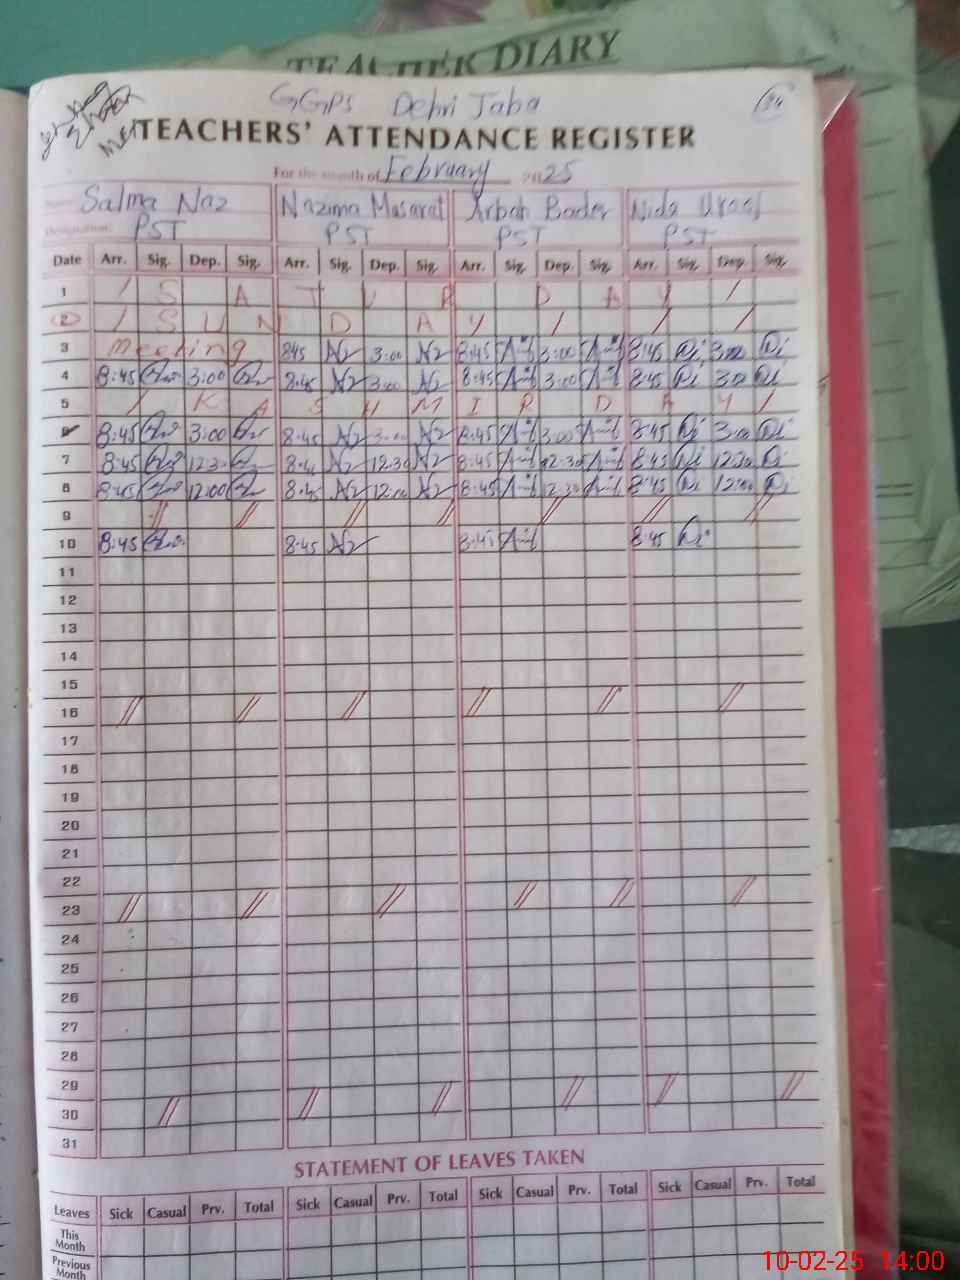 TEACHER DIARY
GGPS Dehri Jaba
TEACHERS' ATTENDANCE REGISTER
For the month of February 2025
Name: Salma Naz Nazima Masarat Arbah Bader Nida
Designation: PST PST PST PST
Date Arr. Sig. Dep. Sig. Arr. Sig. Dep. Sig. Arr. Sig. Dep. Sig. Arr. Sig. Dep. Sig.
1 / S A T U R D A Y /
2 / S U N D A Y / / /
3 Meeting 845 3:00 8:45 3:00 8:45 3:00
4 8:45 3:00 8:45 3:00 8:45 3:00 8:45 3:00
5 / K A S H M I R D A Y /
6 8:45 3:00 8:45 3:00 8:45 3:00 8:45 3:00
7 8:45 12:30 8:45 12:30 8:45 12:30 8:45 12:30
8 8:45 12:00 8:45 12:00 8:45 12:30 8:45
9 // // // // // // //
10 8:45 8:45 8:45 8:45
11
12
13
14
15
16 // // // // // //
17
18
19
20
21
22
23 // // // // // //
24
25
26
27
28
29
30 // // // // // //
31
STATEMENT OF LEAVES TAKEN
Leaves Sick Casual Prv. Total Sick Casual Prv. Total Sick Casual Prv. Total Sick Casual Prv. Total
This Month
Previous Month
10-02-25 14:00